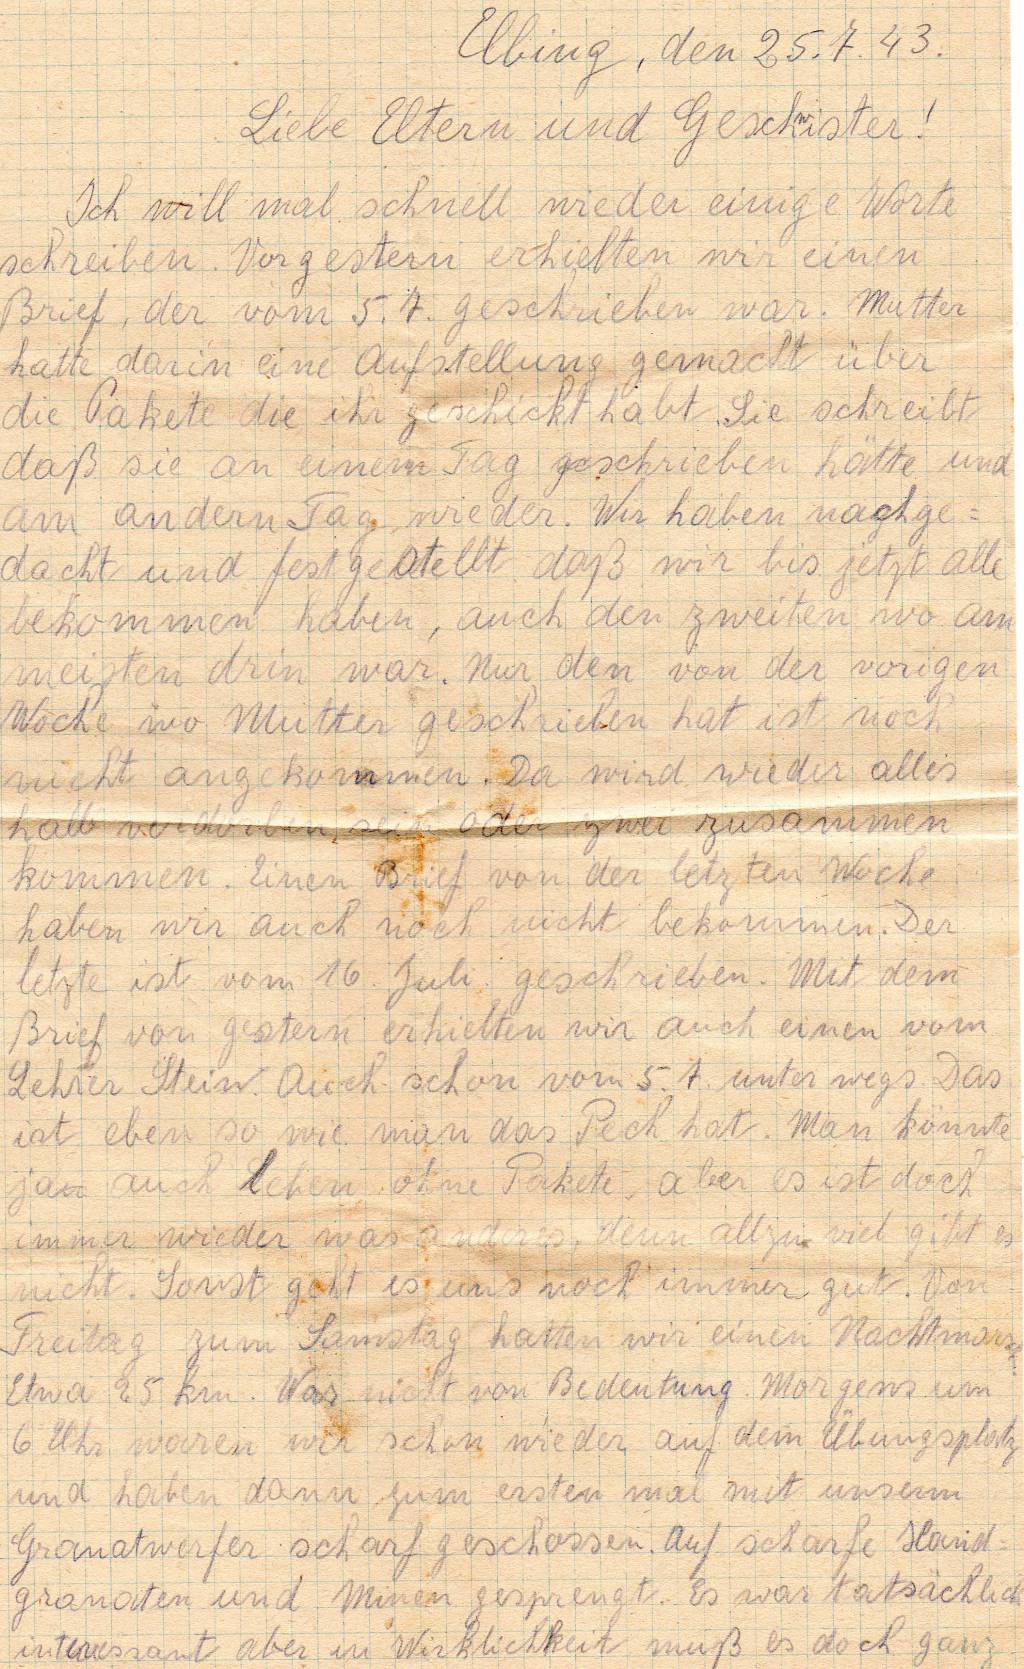 Elbing, den 25.7.43.
Liebe Eltern und Geschwister!
Ich will mal schnell wieder einige Worte
schreiben. Vorgestern erhielten wir einen
Brief, der vom 5.7. geschrieben war. Mutter
hatte darin eine Aufstellung gemacht über
die Pakete die ihr geschickt habt. Sie schreibt
daß sie an einem Tag geschrieben hätte und
am andern Tag wieder. Wir haben nachge=
dacht und festgestellt daß wir bis jetzt alle
bekommen haben, auch den zweiten wo am
meisten drin war. Nur den von der vorigen
Woche wo Mutter geschrieben hat ist noch
nicht angekommen. Da wird wieder alles
halb verdorben sein oder zwei zusammen
kommen. Einen Brief von der letzten Woche
haben wir auch noch nicht bekommen. Der
letzte ist vom 16. Juli geschrieben. Mit dem
Brief von gestern erhielten wir auch einen vom
Lehrer Stein. Auch schon vom 5.7. unterwegs. Das
ist eben so wie man das Pech hat. Man könnte
ja auch leben ohne Pakete, aber es ist doch
immer wieder was anderes, denn allzu viel gibt es
nicht. Sonst geht es uns noch immer gut. Von
Freitag zum Samstag hatten wir einen Nachtmarsch.
Etwa 25 km. War nicht von Bedeutung. Morgens um
6 Uhr waren wir schon wieder auf dem Übungsplatz
und haben dann zum ersten mal mit unserm
Granatwerfer scharf geschossen. Auf scharfe Hand=
granaten und Minen gesprengt. Es war tatsächlich
interessant aber in Wirklichkeit muß es doch ganz